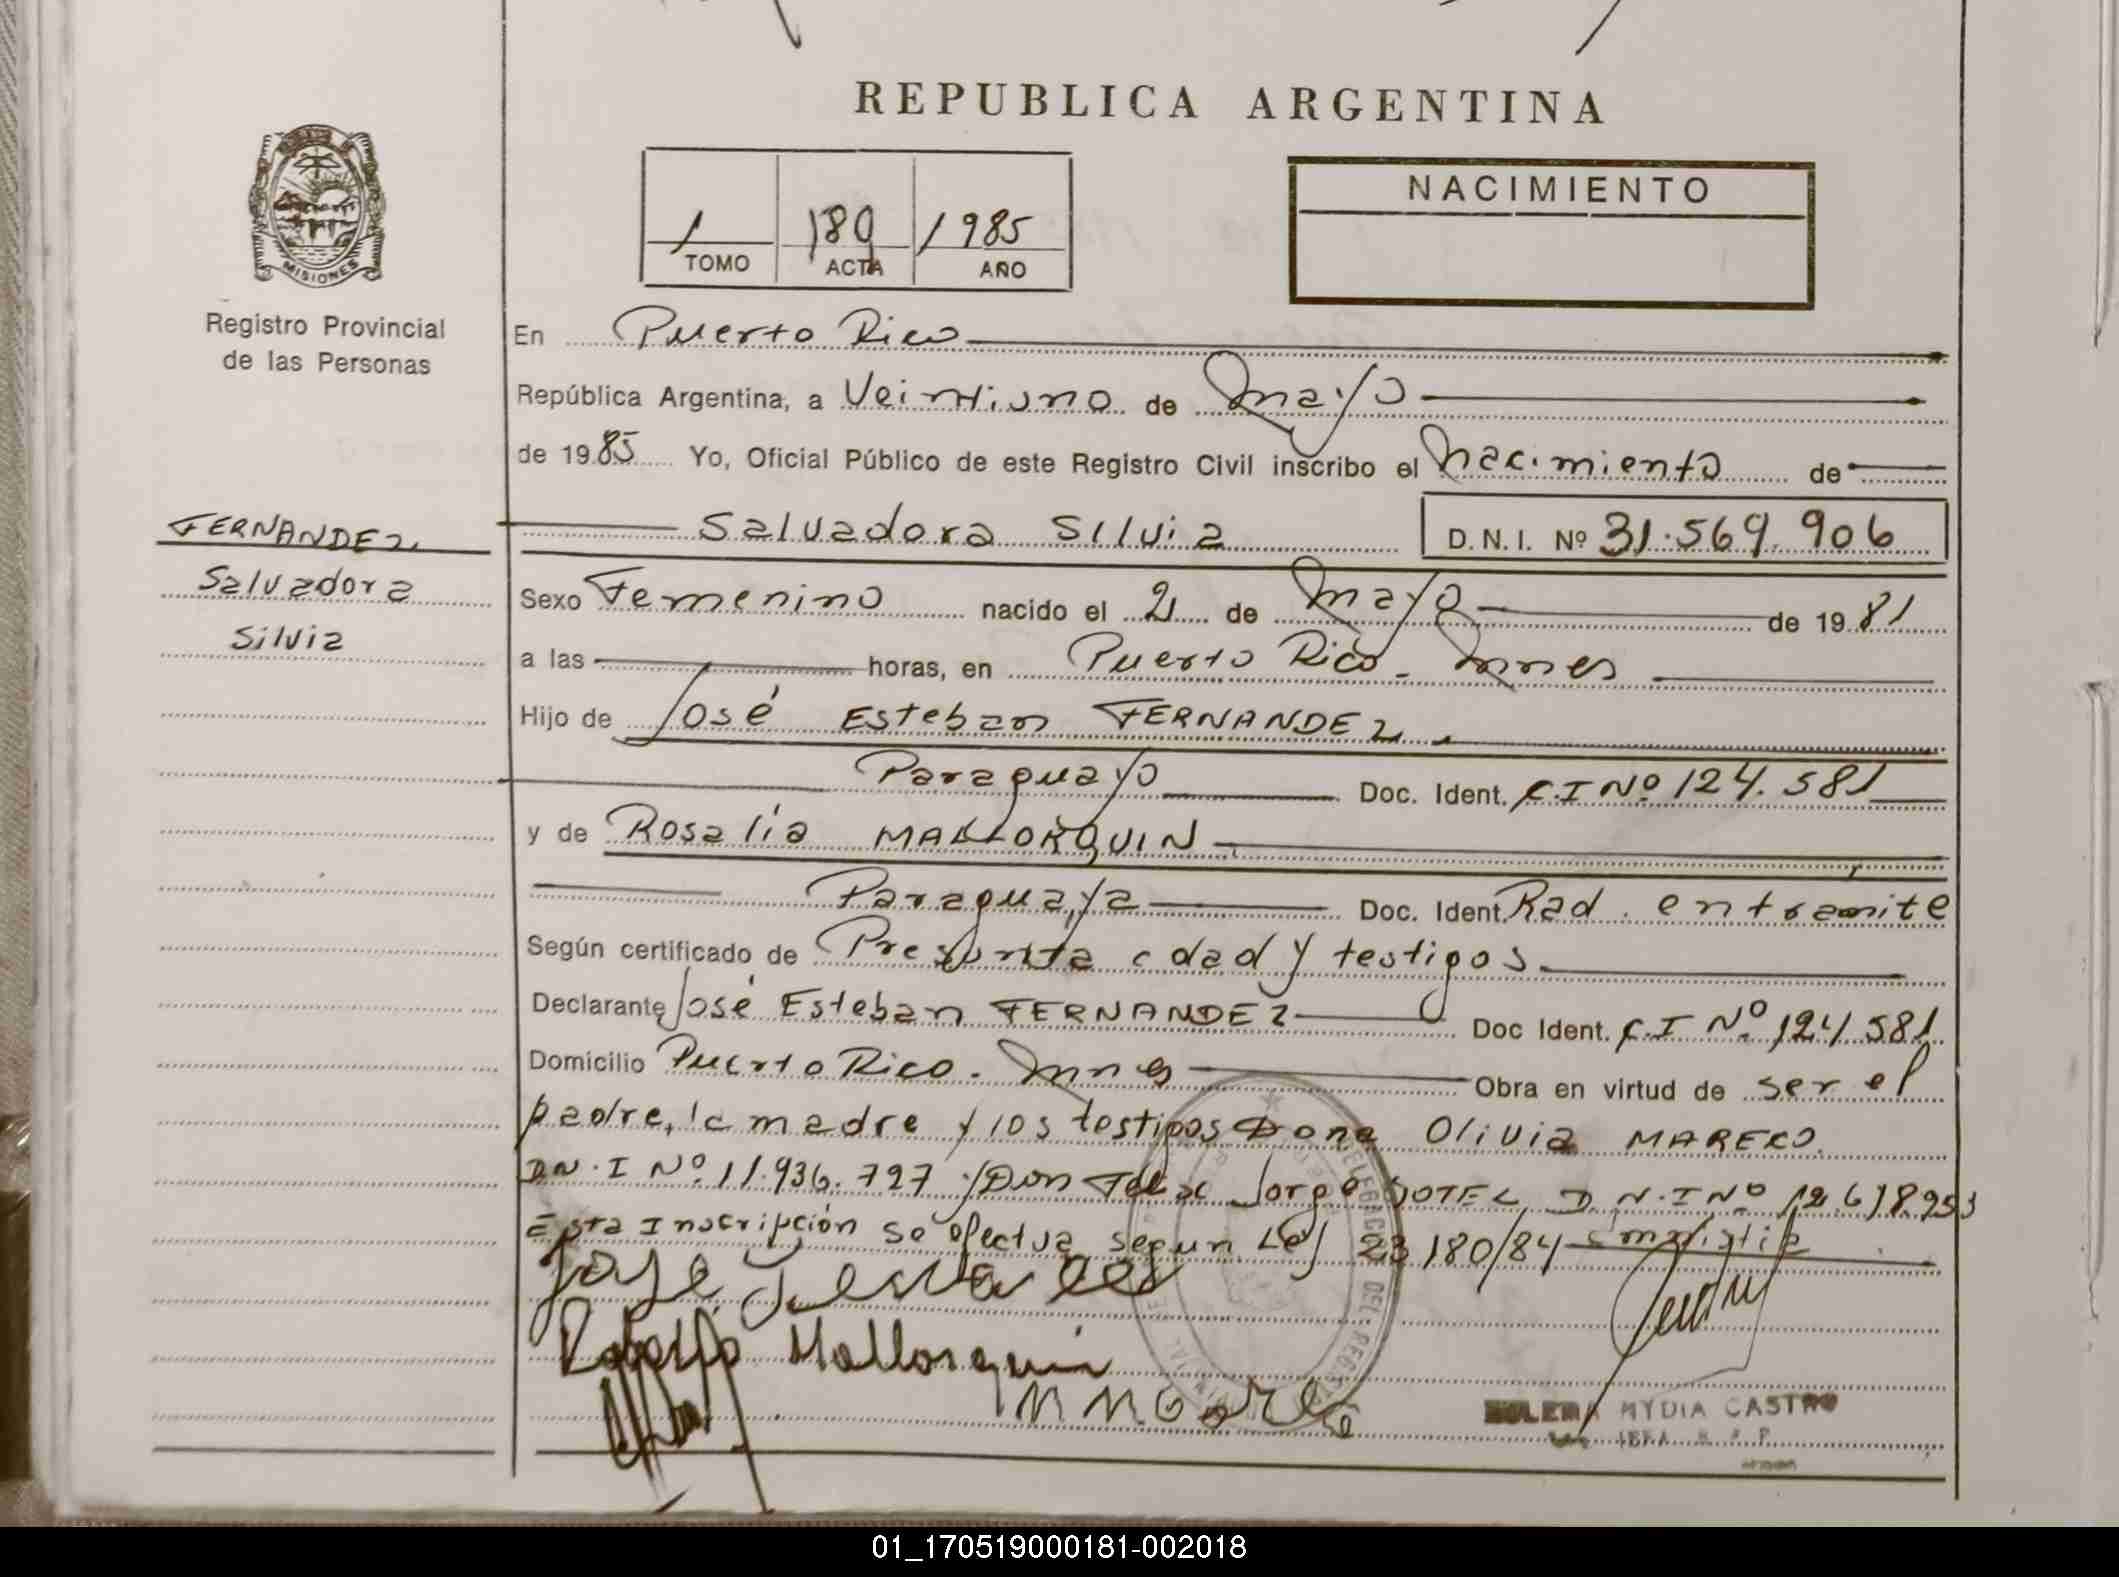 REPUBLICA ARGENTINA
MISIONES
Registro Provincial
de las Personas
1 TOMO
189 ACTA
1985 AÑO
NACIMIENTO
En Puerto Rico
República Argentina, a Veintiuno de Mayo
de 1985 Yo, Oficial Público de este Registro Civil inscribo el Nacimiento de
FERNANDEZ
Salvadora
Silvia
Salvadora Silvia D.N.I. Nº 31.569.906
Sexo Femenino nacido el 21 de Mayo de 1981
a las horas, en Puerto Rico - Mnes
Hijo de José Esteban FERNANDEZ
Paraguayo Doc. Ident. C.I Nº 124.581
y de Rosalia MALLORQUIN
Paraguaya Doc. Ident. Rad. en tramite
Según certificado de Presunta edad y testigos
Declarante José Esteban FERNANDEZ Doc Ident. C.I Nº 124.581
Domicilio Puerto Rico - Mnes Obra en virtud de ser el
padre, la madre y los testigos Dona Olivia MAREKO
D.N.I Nº 11.936.727 y Don Felix Jorge SOTEL D.N.I Nº 12.618.953
Esta Inscripción se efectua segun Ley 23.180/84 Amnistia
José
Rodolfo Mallorquin
MYDIA CASTRO
01_170519000181-002018